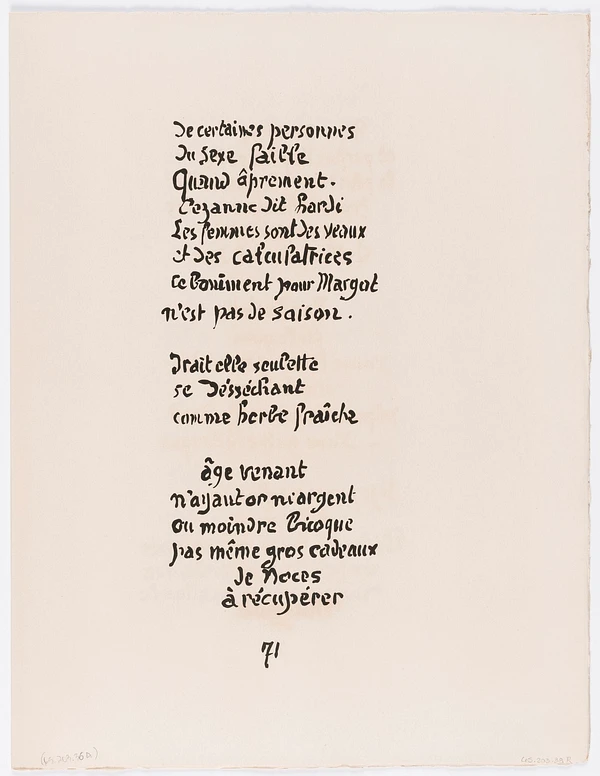 De certaines personnes
Du Sexe faible
Quand âprement.
Cezanne dit hardi
Les femmes sont des veaux
et des calculatrices
ce boniment pour Margot
n'est pas de saison.
Irait elle seulette
se Désséchant
comme herbe fraîche
âge venant
n'ayant or ni argent
ou moindre bicoque
pas même gros cadeaux
de Noces
à récupérer
71